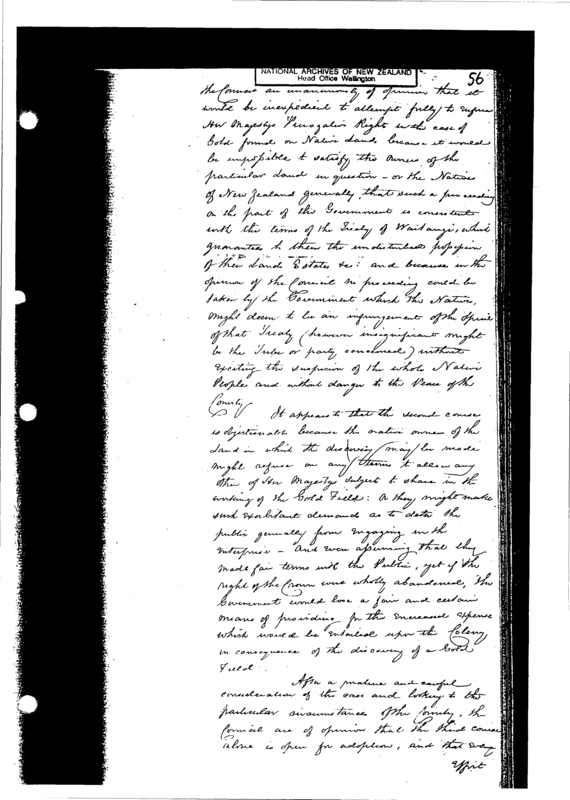 NATIONAL ARCHIVES OF NEW ZEALAND
Head Office Wellington
56
the Council an unanimously of opinion that it
would be inexpedient to attempt fully to enforce
Her Majestys Prerogative Right in the case of
Gold found on Native Lands because it would
be impossible to satisfy the Owners of the
particular Land in question - or the Natives
of New Zealand generally, that such a proceeding
on the part of the Government is consistent
with the terms of the Treaty of Waitangi, which
guarantees to them the undisturbed possession
of their Lands Estates &c: and because in the
opinion of the Council no proceeding could be
taken by the Government which the Natives
might deem to be an infringement of the Spirit
of that Treaty (however insignificant might
be the Tribe or party concerned) without
exciting the suspicion of the whole Native
People and without danger to the Peace of the
Country
It appears to that the second course
is objectionable because the native owners of the
Land in which the discovery may be made
might refuse on any terms to allow any
other of Her Majestys subjects to share in the
working of the Gold Field: Or they might make
such exorbitant demands as to deter the
public generally from engaging in the
enterprise - And even assuming that they
made fair terms with the Public, yet if the
right of the Crown were wholly abandoned, the
Government would lose a fair and certain
means of providing for the increased expense
which would be entailed upon the Colony
in consequence of the discovery of a Gold
Field.
After a mature and careful
consideration of the case and looking to the
particular circumstances of the Country, the
Council are of opinion that the third course
alone is open for adoption, and that every
effort